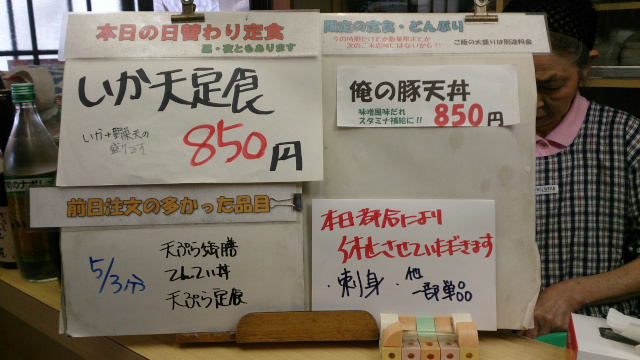 本日の日替わり定食
昼・夜ともあります
いか天定食
いか+野菜天の
盛りです
850円
前日注文の多かった品目
5/3分
天ぷら短膳
てんてい丼
天ぷら定食
限定の定食・どんぶり
ご飯の大盛りは別途料金
俺の豚天丼
味噌風味だれ
スタミナ補給に!!
850円
本日都合により
休止させていただきます
・刺身・他
一部単品